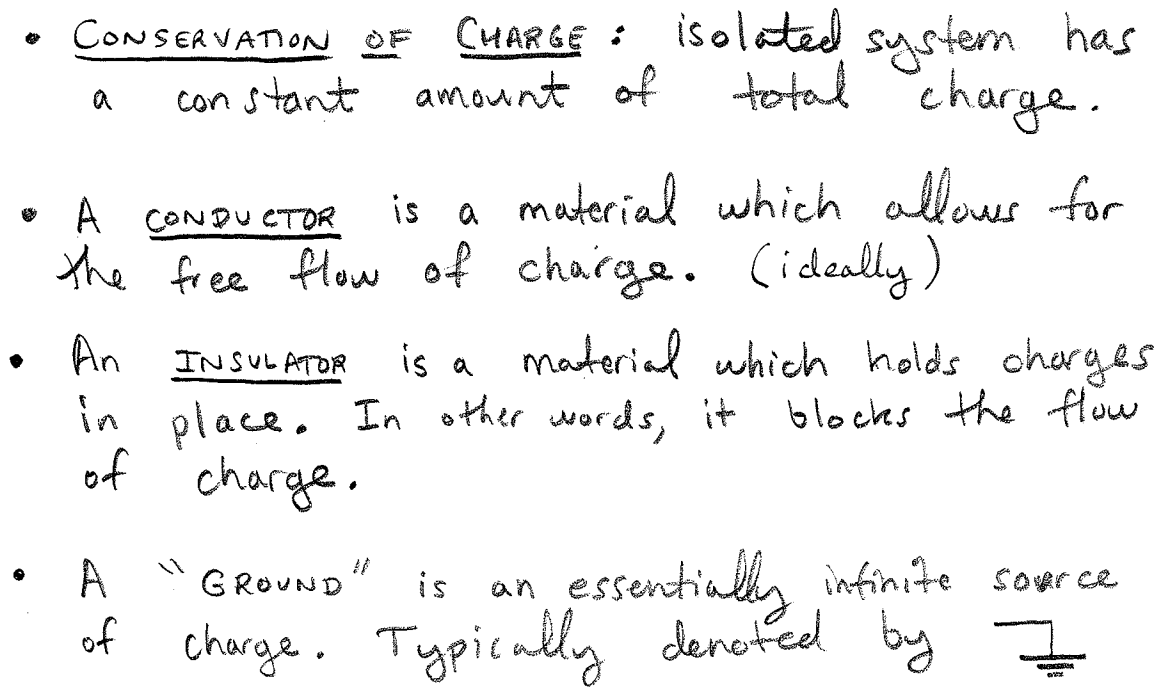 • CONSERVATION OF CHARGE: isolated system has
a constant amount of total charge.
• A CONDUCTOR is a material which allows for
the free flow of charge. (ideally)
• An INSULATOR is a material which holds charges
in place. In other words, it blocks the flow
of charge.
• A "GROUND" is an essentially infinite source
of charge. Typically denoted by